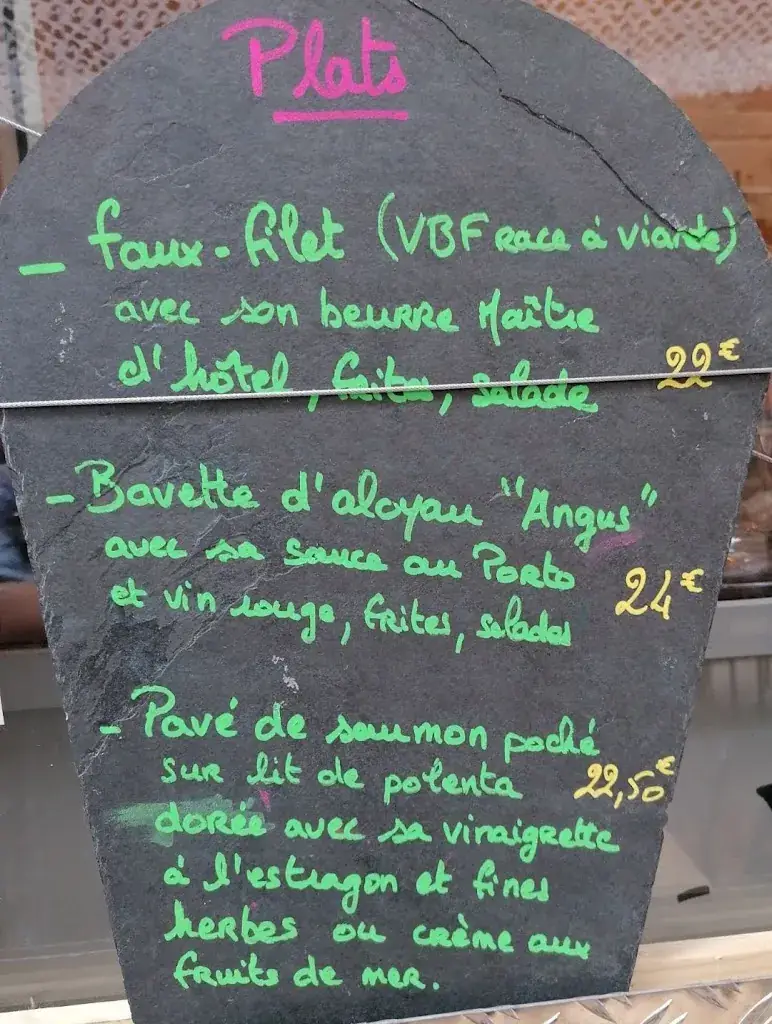 Plats
- faux-filet (VBF race à viande)
avec son beurre Maître
d'hôtel, frites, salade 22€
- Bavette d'aloyau "Angus"
avec sa sauce au Porto
et vin rouge, frites, salades 24€
- Pavé de saumon poché
sur lit de polenta 22,50€
dorée avec sa vinaigrette
à l'estragon et fines
herbes ou crème aux
fruits de mer.